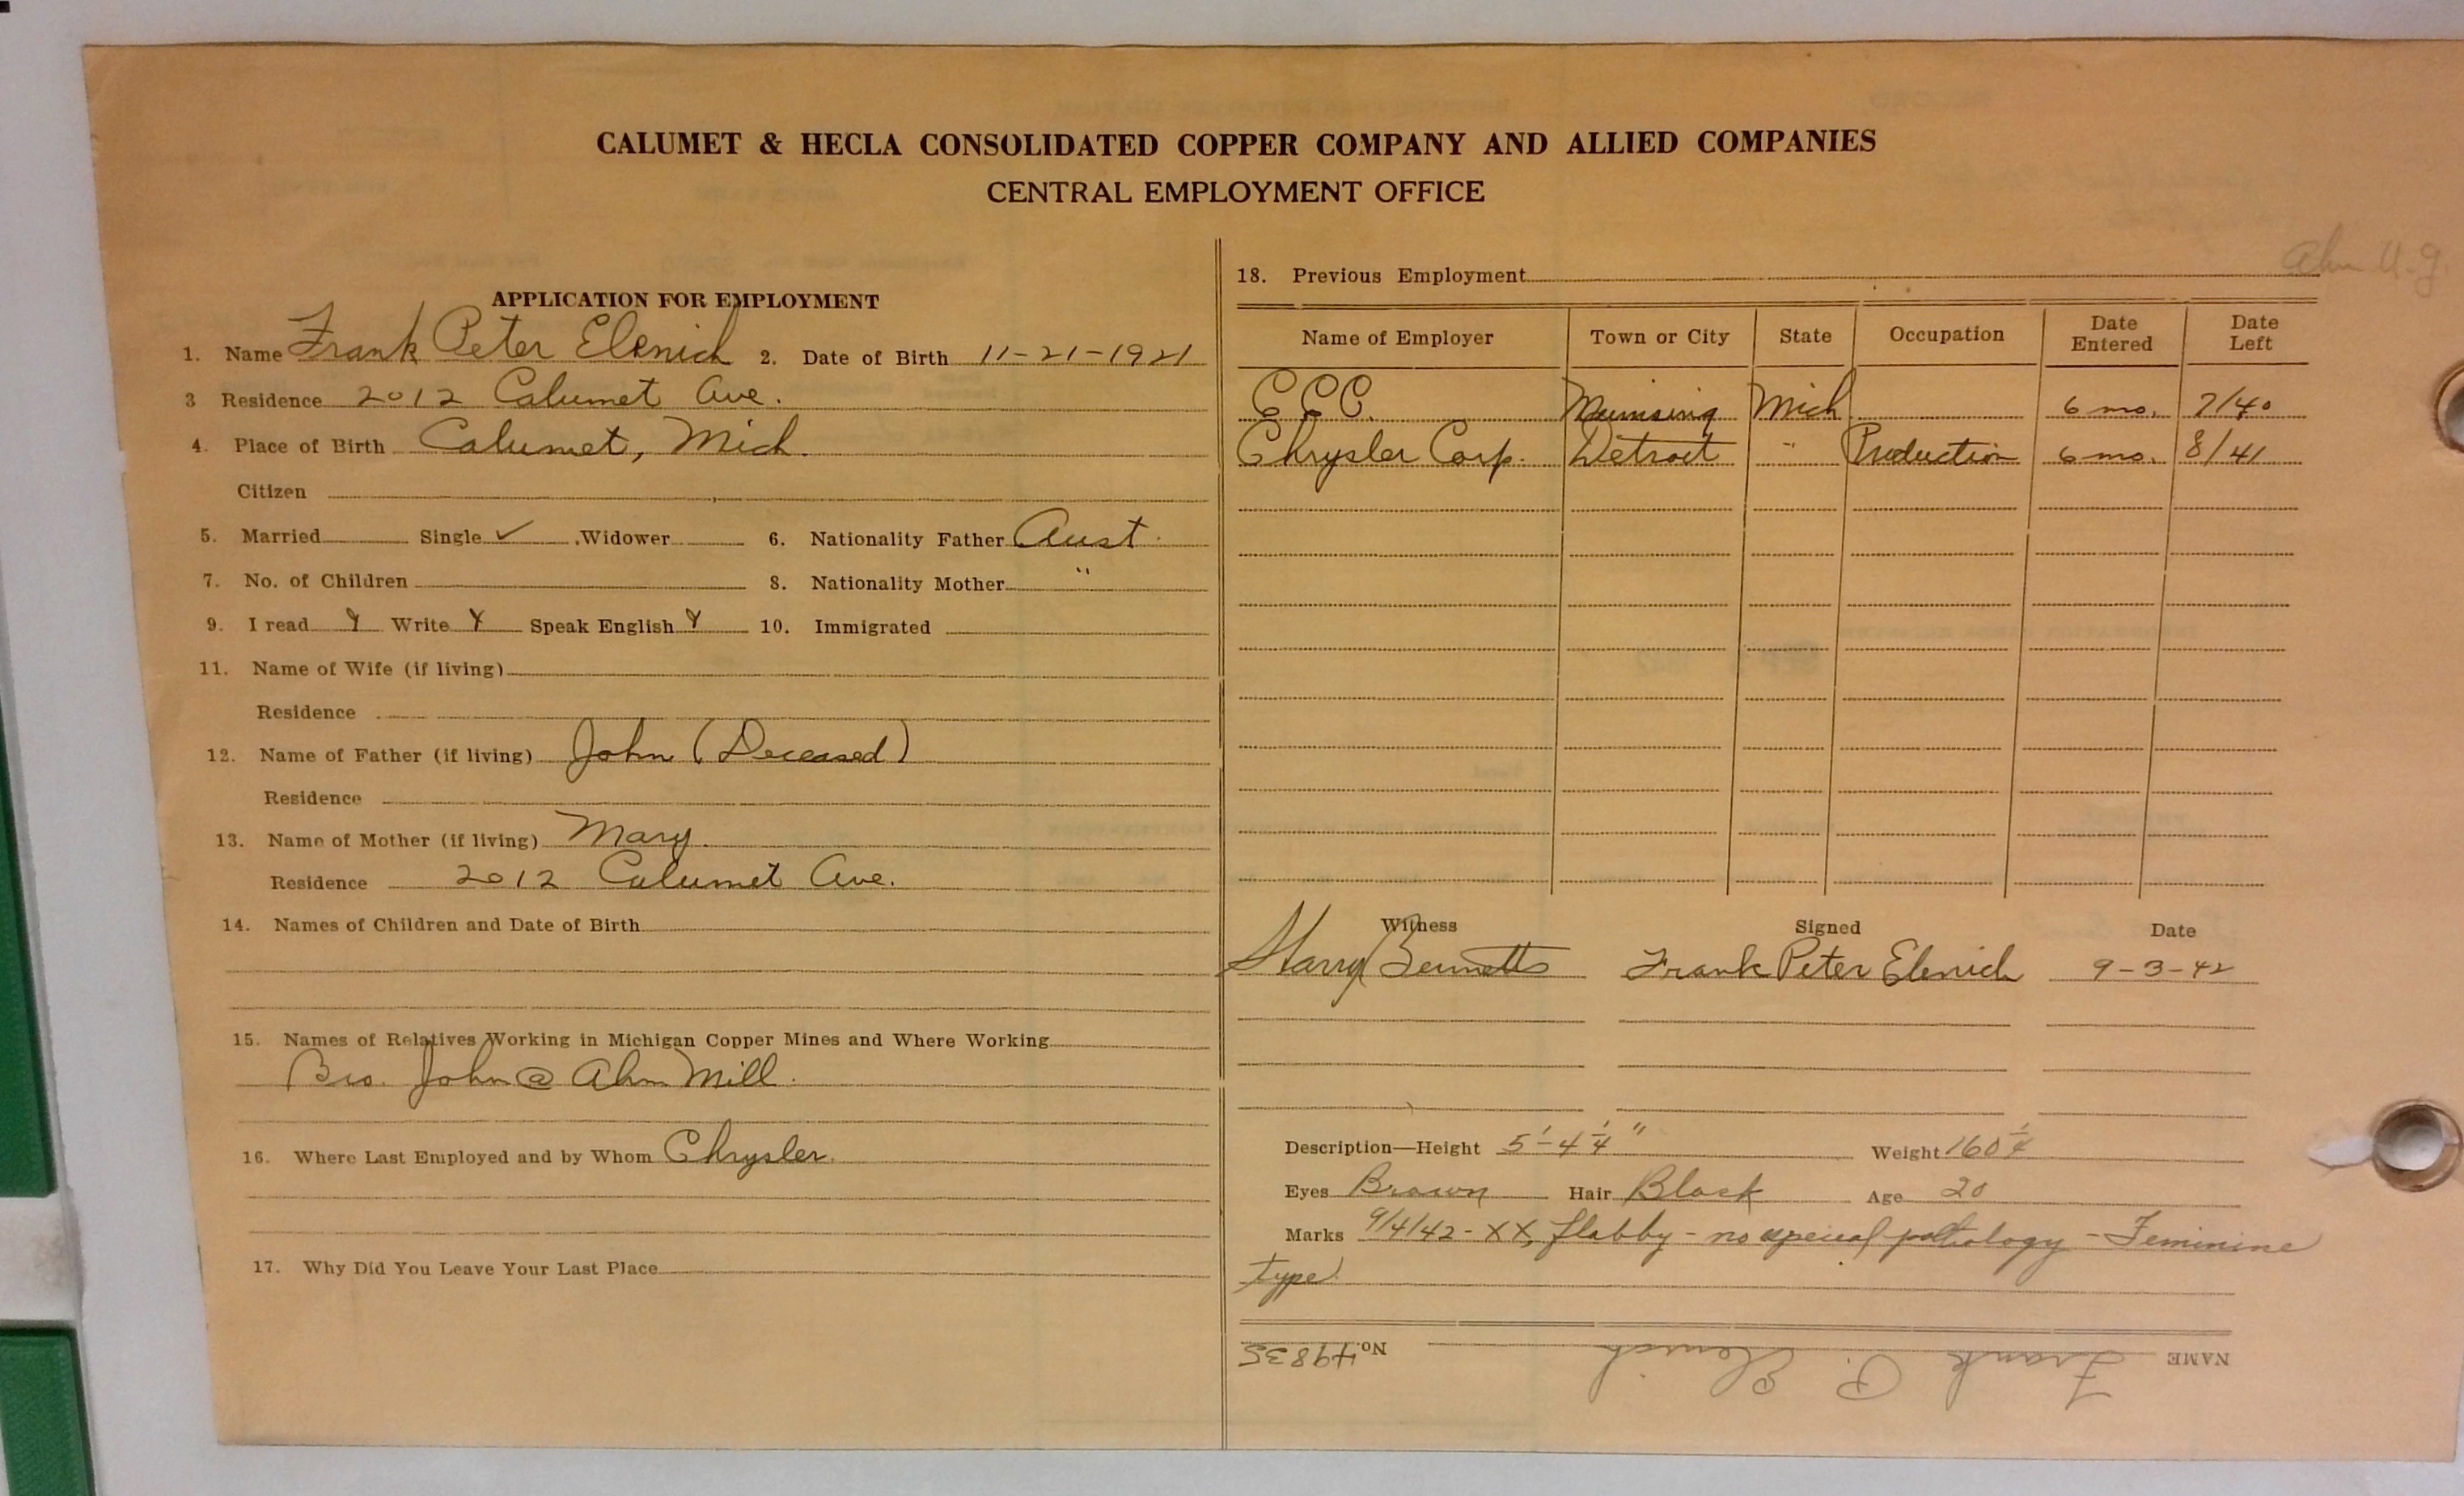 CALUMET & HECLA CONSOLIDATED COPPER COMPANY AND ALLIED COMPANIES
CENTRAL EMPLOYMENT OFFICE
APPLICATION FOR EMPLOYMENT
1. Name Frank Peter Elenich 2. Date of Birth 11-21-1921
3 Residence 2012 Calumet Ave.
4. Place of Birth Calumet, Mich.
Citizen
5. Married Single ✓ Widower 6. Nationality Father Aust.
7. No. of Children 8. Nationality Mother "
9. I read Y Write Y Speak English Y 10. Immigrated
11. Name of Wife (if living)
Residence
12. Name of Father (if living) John (Deceased)
Residence
13. Name of Mother (if living) Mary.
Residence 2012 Calumet Ave.
14. Names of Children and Date of Birth
15. Names of Relatives Working in Michigan Copper Mines and Where Working
Bro. John @ Ahm. Mill.
16. Where Last Employed and by Whom Chrysler.
17. Why Did You Leave Your Last Place
Ahm U.G.
18. Previous Employment
Name of Employer Town or City State Occupation Date Entered Date Left
CCC. Munising Mich 6 mo. 7/40
Chrysler Corp. Detroit " Production 6 mo. 8/41
Witness Signed Date
Harry Bennetts Frank Peter Elenich 9-3-42
Description—Height 5'-4 1/4" Weight 160 1/4
Eyes Brown Hair Black Age 20
Marks 9/4/42 - XX, flabby - no special pathology - Feminine
type
NAME Frank P. Elenich No. 49835